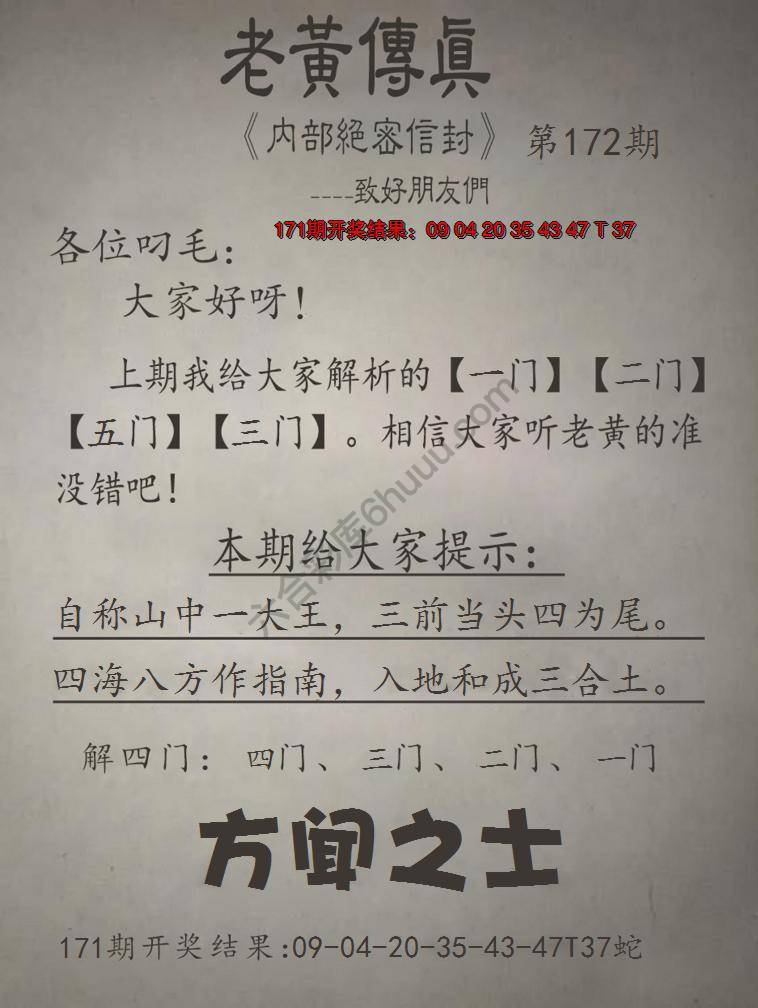 老黃傳真
《内部絕密信封》 第172期
----致好朋友們
171期开奖结果：09 04 20 35 43 47 T 37
各位叼毛：
大家好呀！
上期我给大家解析的【一门】【二门】
【五门】【三门】。相信大家听老黄的准
没错吧！
本期给大家提示：
自称山中一大王，三前当头四为尾。
四海八方作指南，入地和成三合土。
解四门： 四门、 三门、 二门、 一门
方闻之士
171期开奖结果:09-04-20-35-43-47T37蛇
六合彩库6huuu.com